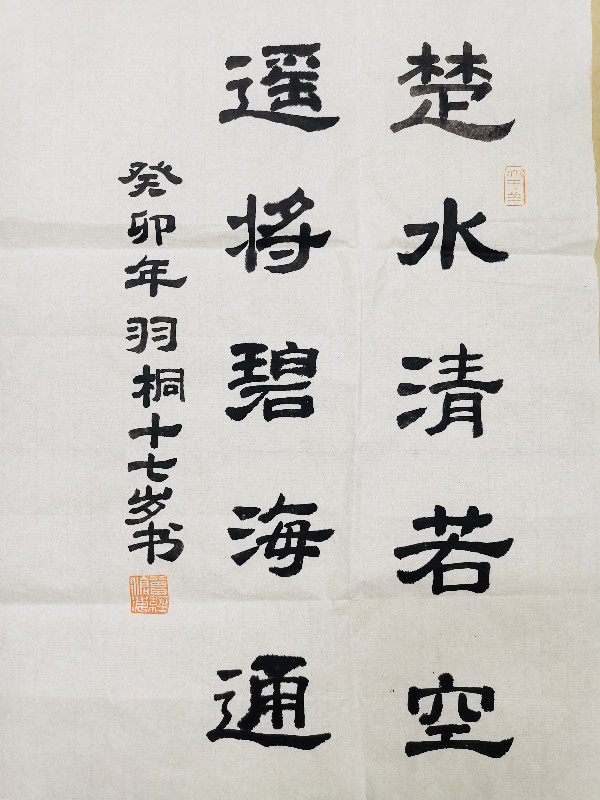 楚水清若空
遥将碧海通
癸卯年羽桐十七岁书